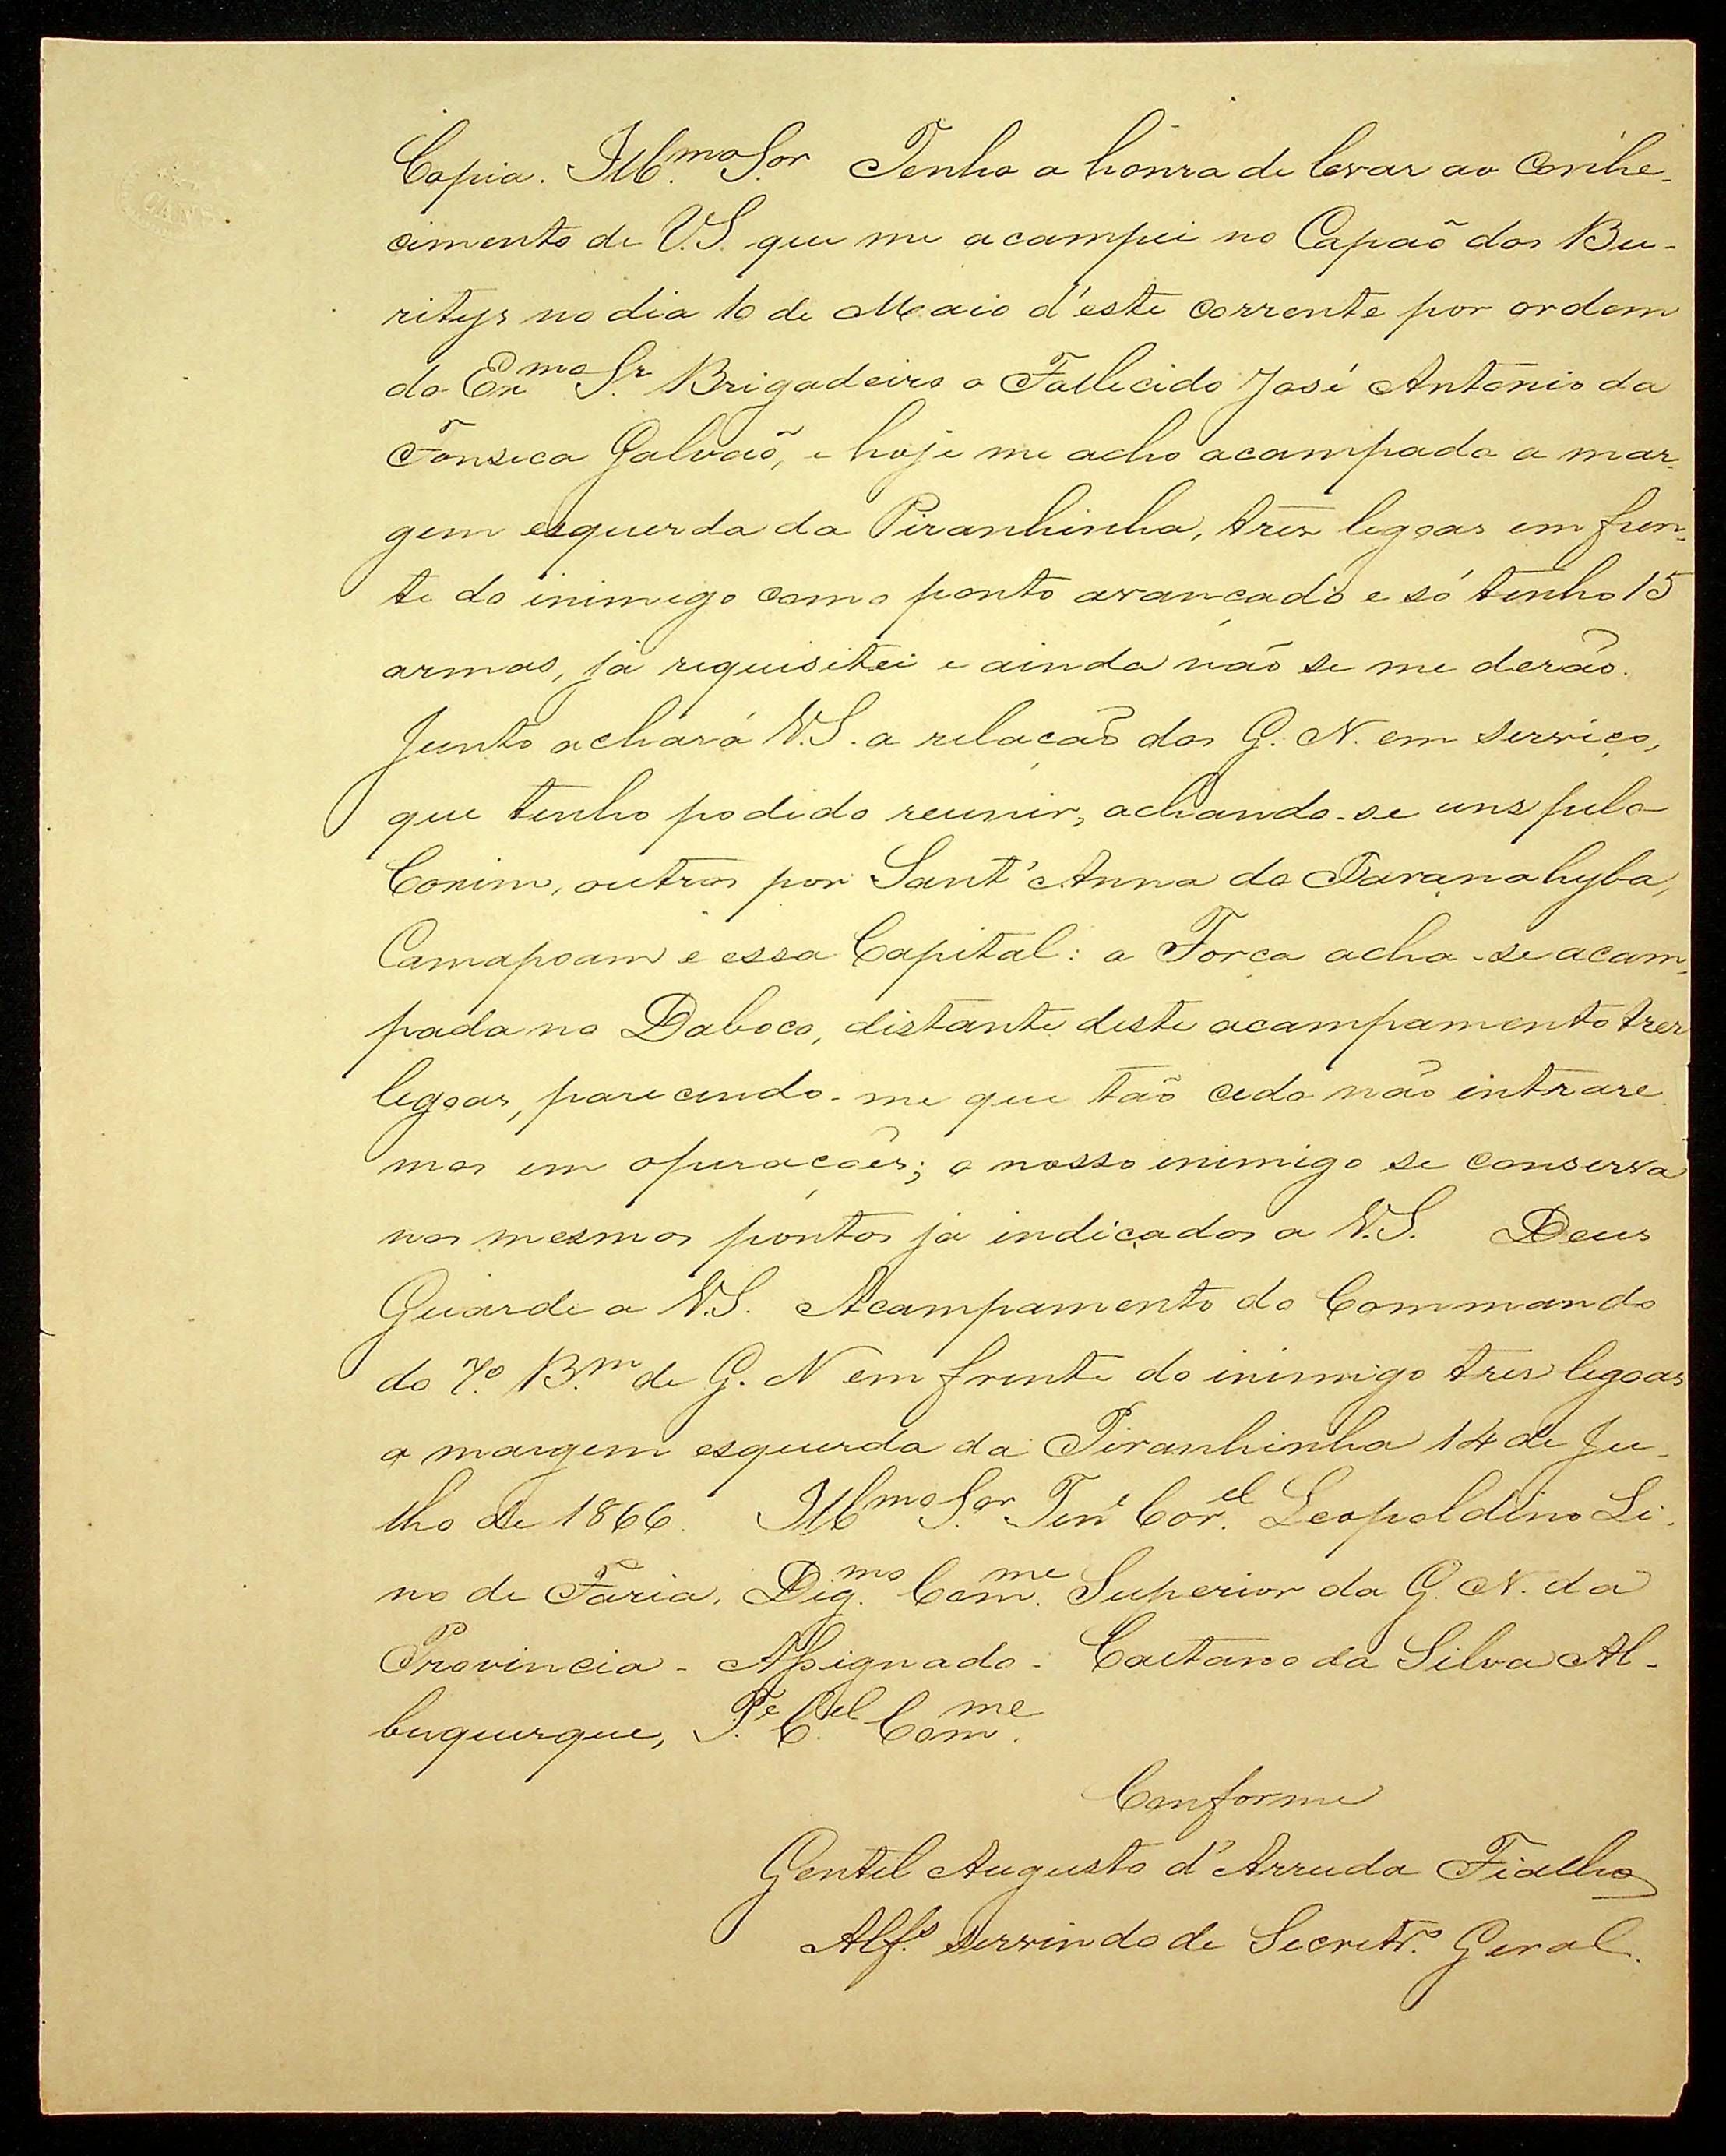 Copia. Ill.mo S.or Tenho a honra de levar ao conhe-
cimento de V.S. que me acampei no Capaõ dos Bu-
ritys no dia 10 de Maio d'este corrente por ordem
do Ex.mo Sr. Brigadeiro o Fallecido José Antonio da
Fonseca Galvaõ, e hoje me acho acampado a mar-
gem esquerda da Piranhinha, tres legoas em fren-
te do inimigo como ponto avançado e só tenho 15
armas, ja requisitei e ainda não se me derão.
Junto achará V.S. a relação dos G. N. em serviço,
que tenho podido reunir, achando-se uns pelo
Coxim, outros por Sant'Anna do Paranahyba,
Camapoam e essa Capital: a Força acha-se acam-
pada no Daboco, distante deste acampamento tres
legoas, parecendo-me que taõ cedo não intrare-
mos em operações; o nosso inimigo se conserva
nos mesmos pontos ja indicados a V.S. Deus
Guarde a V.S. Acampamento do Commando
do 7.º B.m de G. N em frente do inimigo tres legoas
a margem esquerda da Piranhinha 14 de Ju-
lho de 1866. Ill.mo S.or Ten.e Cor.el Leopoldino Li-
no de Faria, Dig.mo Com.me Superior da G. N. da
Provincia - Assignado - Caetano da Silva Al-
buquerque, T.e C.el Com.me
Conforme
Gentil Augusto d'Arruda Fialho
Alf.s servindo de Secretr.o Geral.